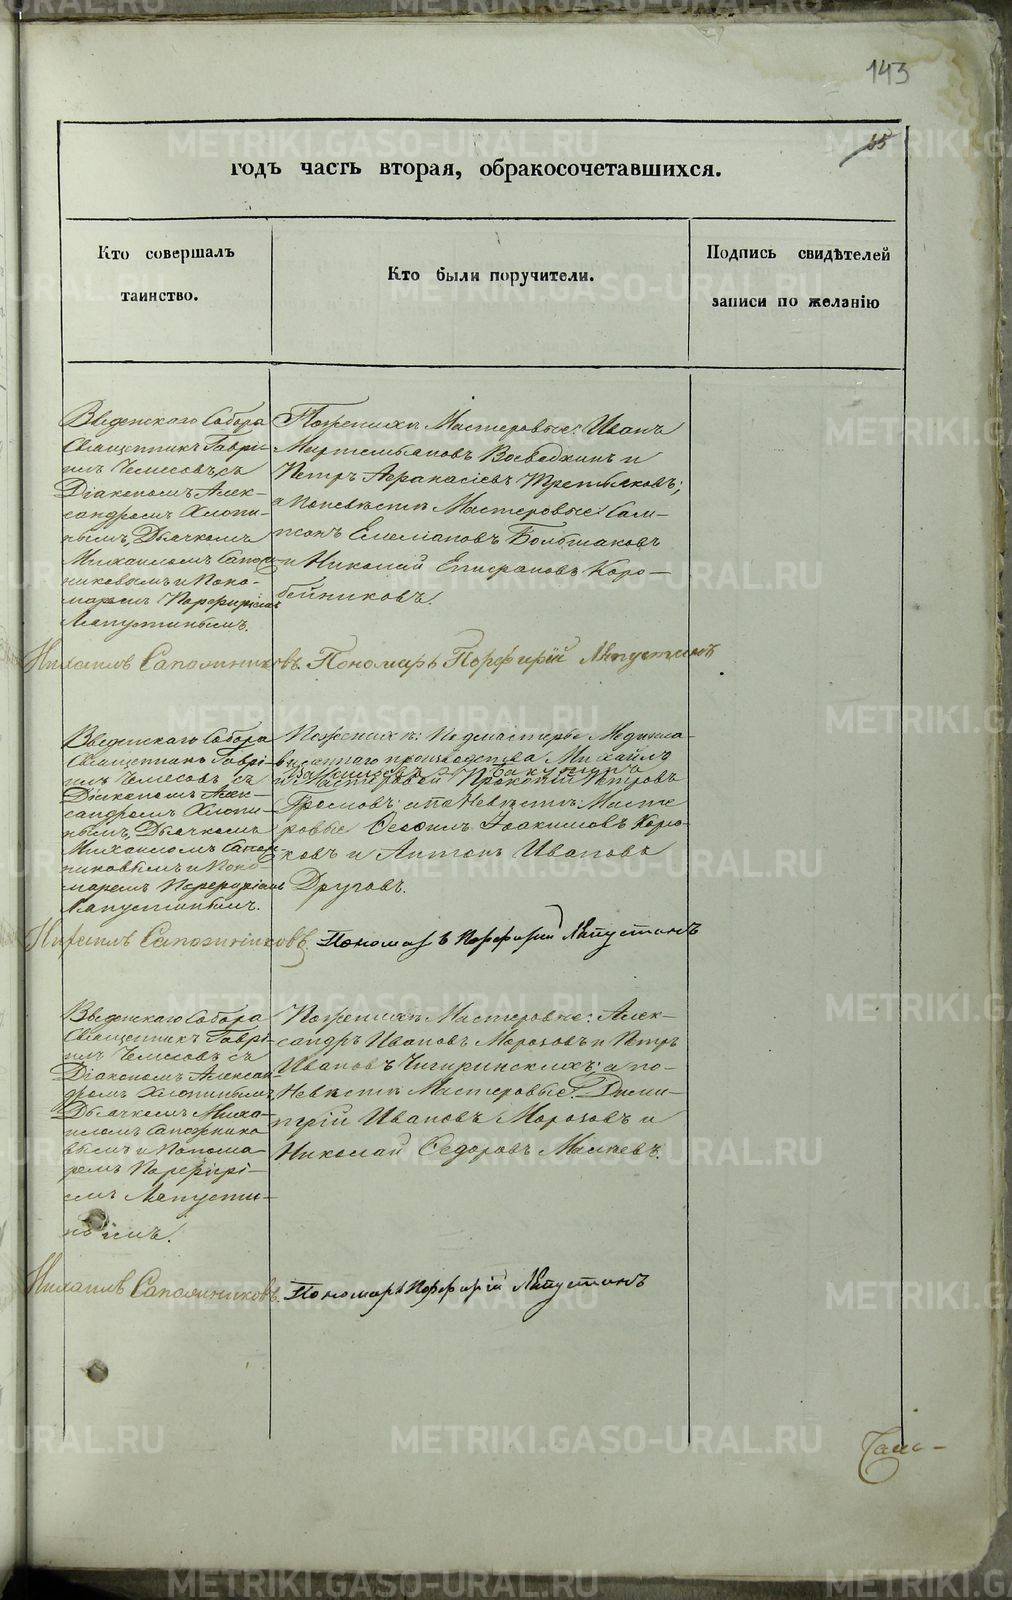 143
55
годъ часть вторая, обракосочетавшихся.
Кто совершалъ
таинство.
Кто были поручители.
Подпись свидѣтелей
записи по желанію
Введенскаго Собора
Священникъ Гаврі-
илъ Челесовъ съ
Діакономъ Алек-
сандромъ Хлопи-
нымъ, Дьячкомъ
Михаиломъ Сапож-
никовымъ и Поно-
маремъ Порфиріемъ
Лапустинымъ.
По женихѣ Мастеровые: Иванъ
Воеводкинъ и
Петръ Афанасіевъ Третьяковъ;
а по невѣстѣ Мастеровые: Сам-
сонъ Емеліановъ Большаковъ
и Николай Епифановъ Коро-
бейниковъ.
Михаилъ Сапожниковъ. Пономарь Порфирій Лапустинъ
Введенскаго Собора
Священникъ Гаврі-
илъ Челесовъ съ
Діакономъ Алек-
сандромъ Хлопи-
нымъ, Дьячкомъ
Михаиломъ Сапож-
никовымъ и Поно-
маремъ Порфиріемъ
Лапустинымъ.
По женихѣ: Подмастерье Медипла-
виленнаго производства Михаилъ
Бакунинъ
и Мастеровой Прокопій Петровъ
Громовъ; а по Невѣстѣ: Масте-
ровые Іоакимовъ
ковъ и Антонъ Ивановъ
Друговъ.
Михаилъ Сапожниковъ. Пономарь Порфирій Лапустинъ
Введенскаго Собора
Священникъ Гаврі-
илъ Челесовъ съ
Діакономъ Алексан-
дромъ Хлопинымъ,
Дьячкомъ Миха-
иломъ Сапожнико-
вымъ и Понома-
ремъ Порфирі-
емъ Лапусти-
нымъ.
По женихѣ Мастеровые: Алек-
сандръ Ивановъ Морозовъ и Петръ
Ивановъ Чигиринскихъ; а по-
Невѣстѣ Мастеровые: Дими-
трій Ивановъ Морозовъ и
Николай Ѳедоровъ Малѣевъ.
Михаилъ Сапожниковъ. Пономарь Порфирій Лапустинъ
METRIKI.GASO-URAL.RU